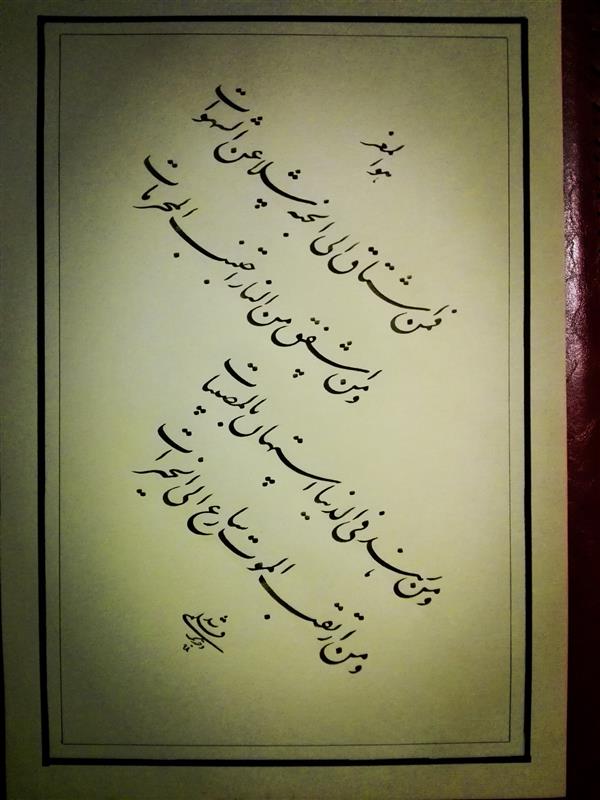 هوالمعز
فمن اشتاق الی الجنة سلا عن الشهوات
ومن اشفق من النار اجتنب المحرمات
ومن زهد فی الدنیا استهان بالمصیبات
ومن ارتقب الموت سارع الی الخیرات